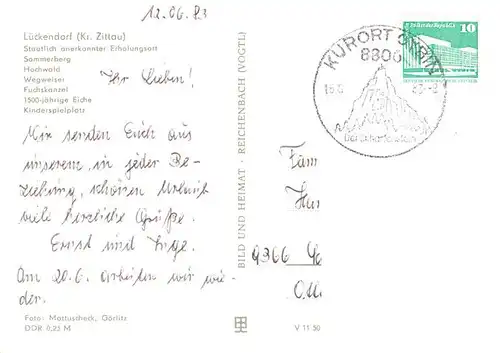 12.06.83
Lückendorf (Kr. Zittau)
Staatlich anerkannter Erholungsort
Sommerberg
Hochwald
Wegweiser
Fuchskanzel
1500-jährige Eiche
Kinderspielplatz
Ihr Lieben!
Wir senden Euch aus
unserem, in jeder Be-
ziehung, schönen Urlaub
viele herzliche Grüße.
Ernst und Inge.
Am 20.6. arbeiten wir wie-
der.
Foto: Mattuscheck, Görlitz
DDR 0,25 M
BILD UND HEIMAT · REICHENBACH (VOGTL)
V 11 50
KURORT OYBIN
8806
10
Fam
9366